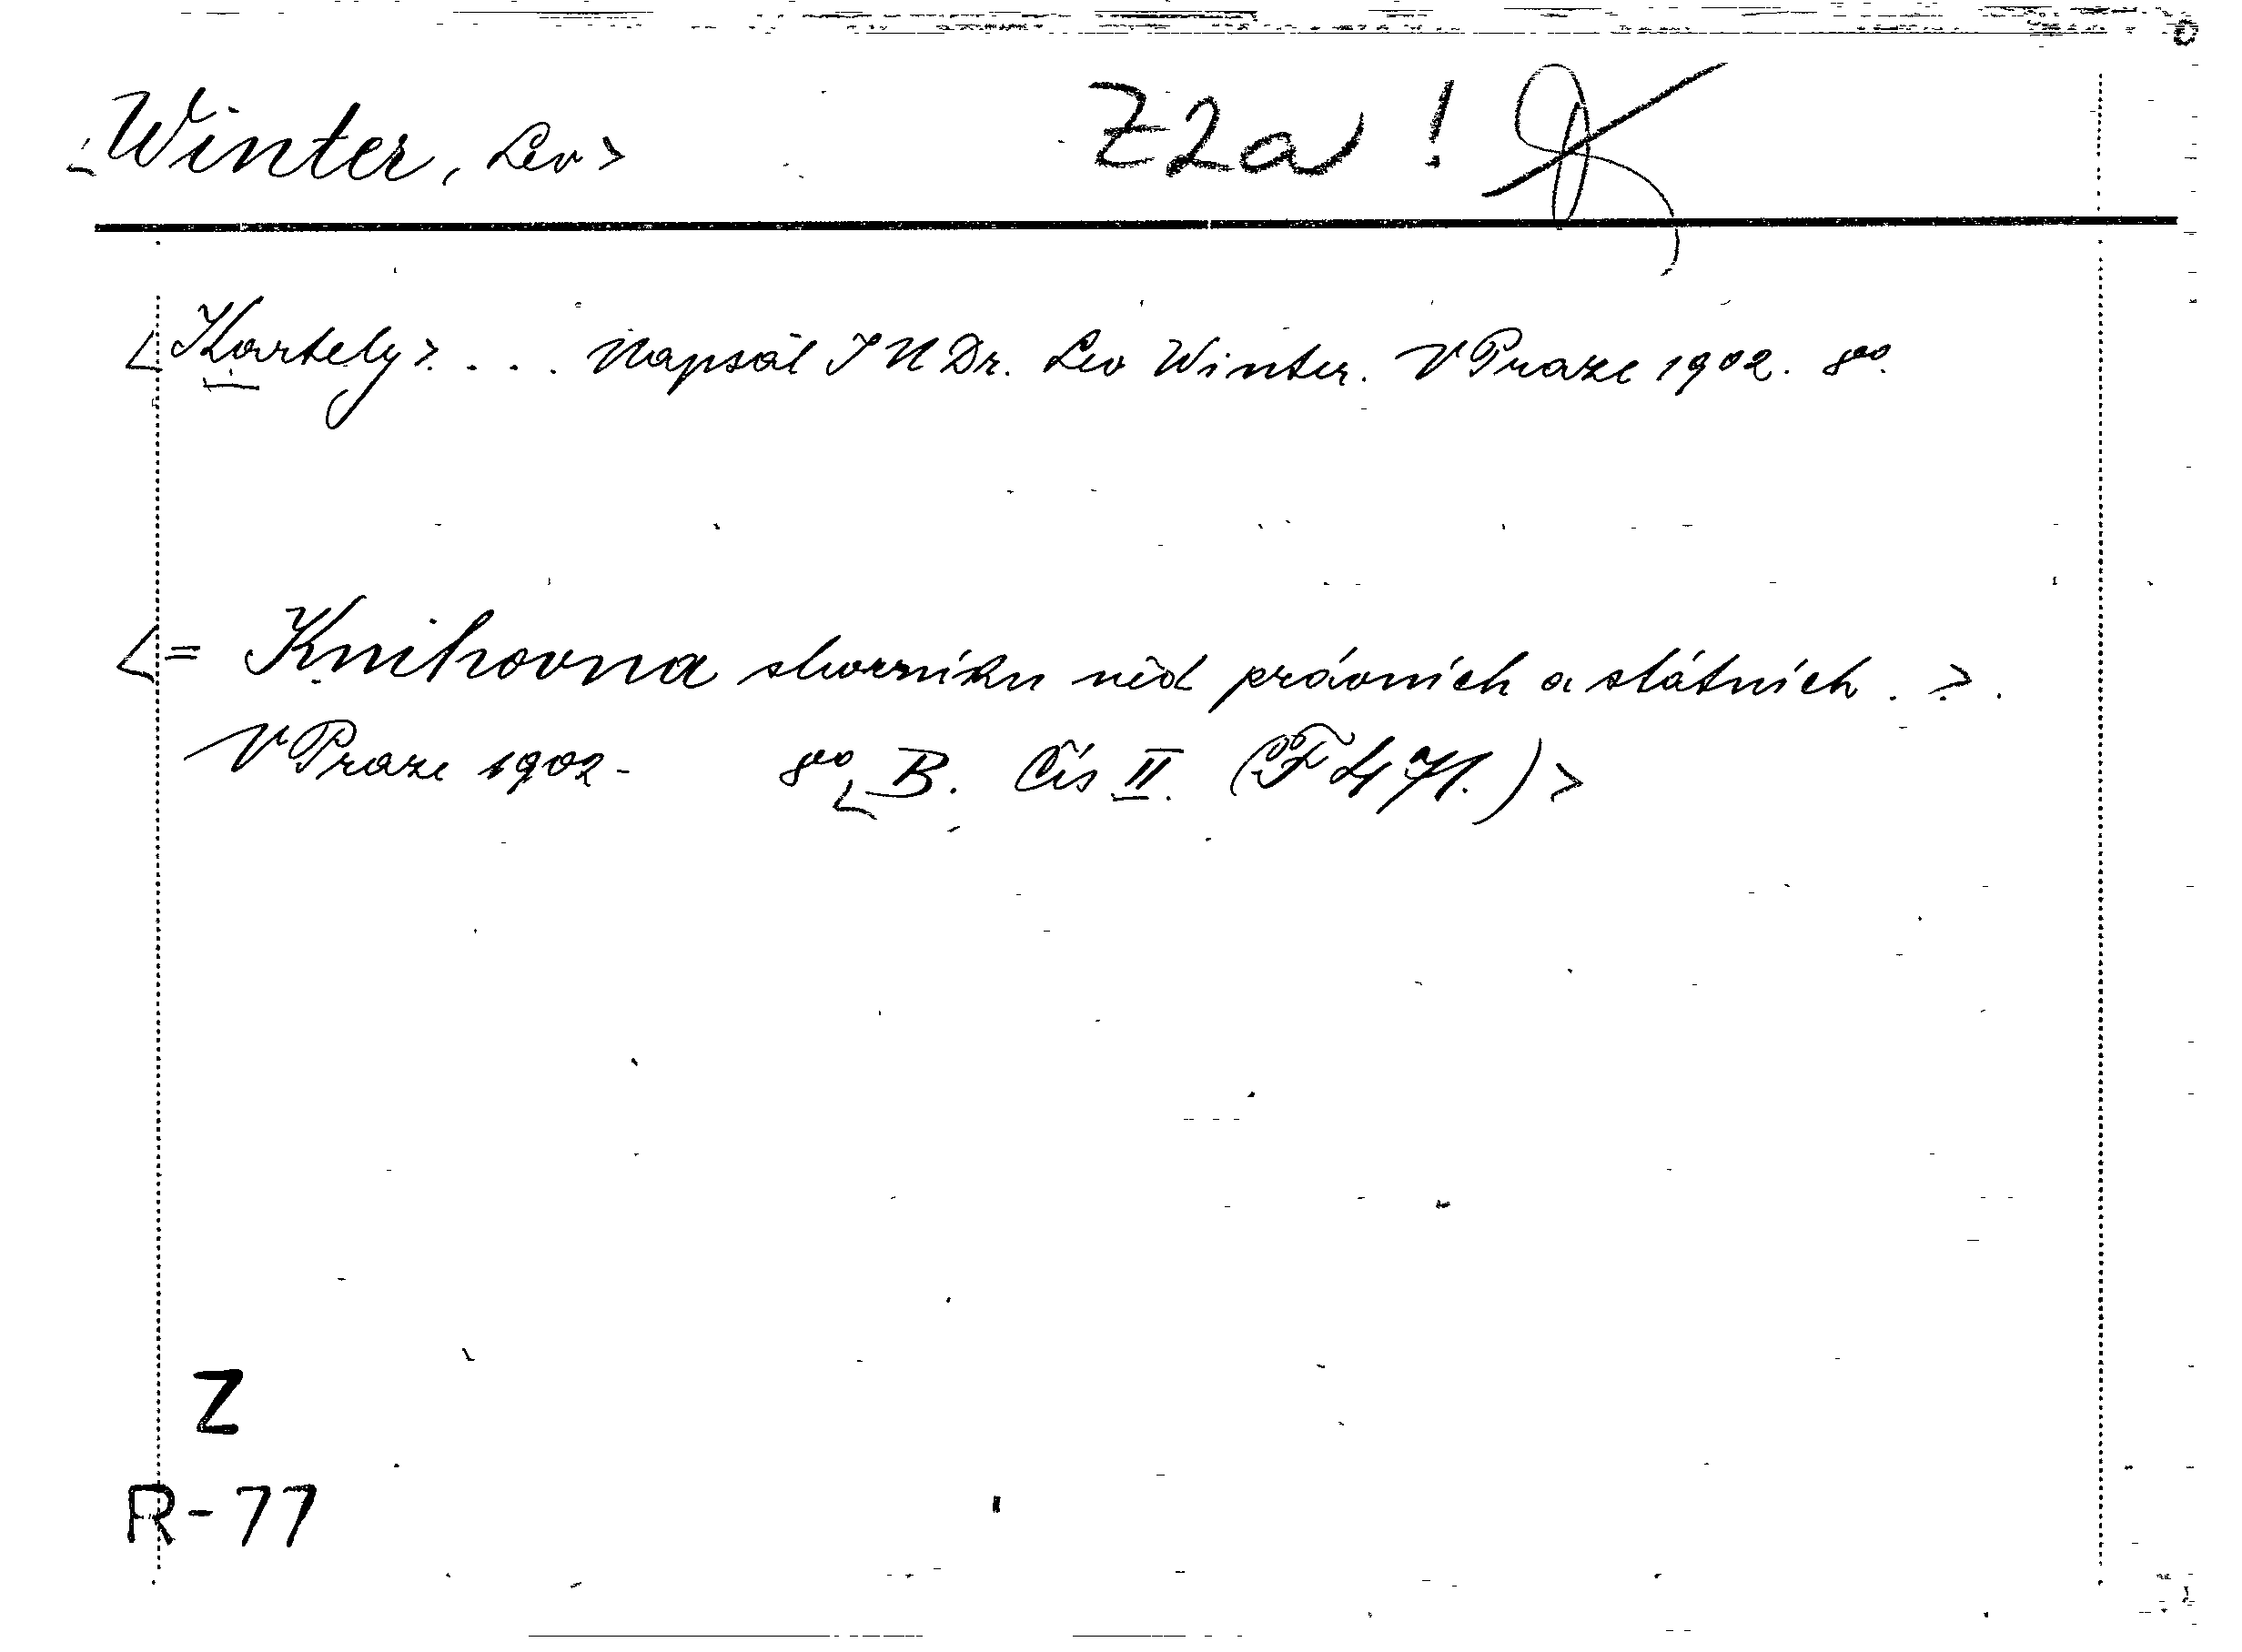 <Winter, Lev> Z2a !
<Kartely> . . . Napsal JUDr. Lev Winter. V Praze 1902. 8vo.
<= Knihovna sborníku věd právních a státních . > .
V Praze 1902- 8vo <B. Čís II. (F 471.)>
Z
R-77